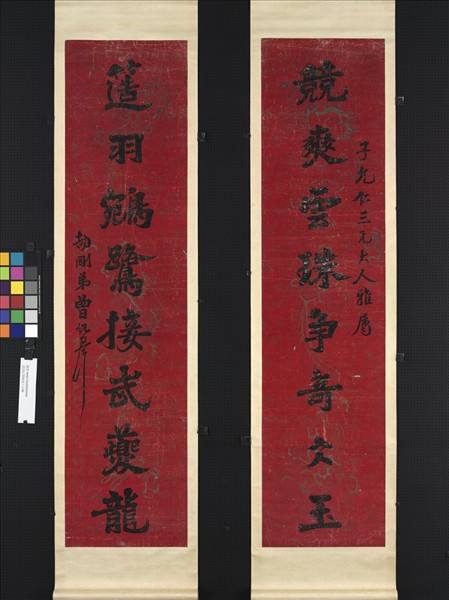 子允仁三兄大人雅屬
競爽雲珠争奇文玉
簉羽鵷鷺接武夔龍
劼剛弟曾紀澤